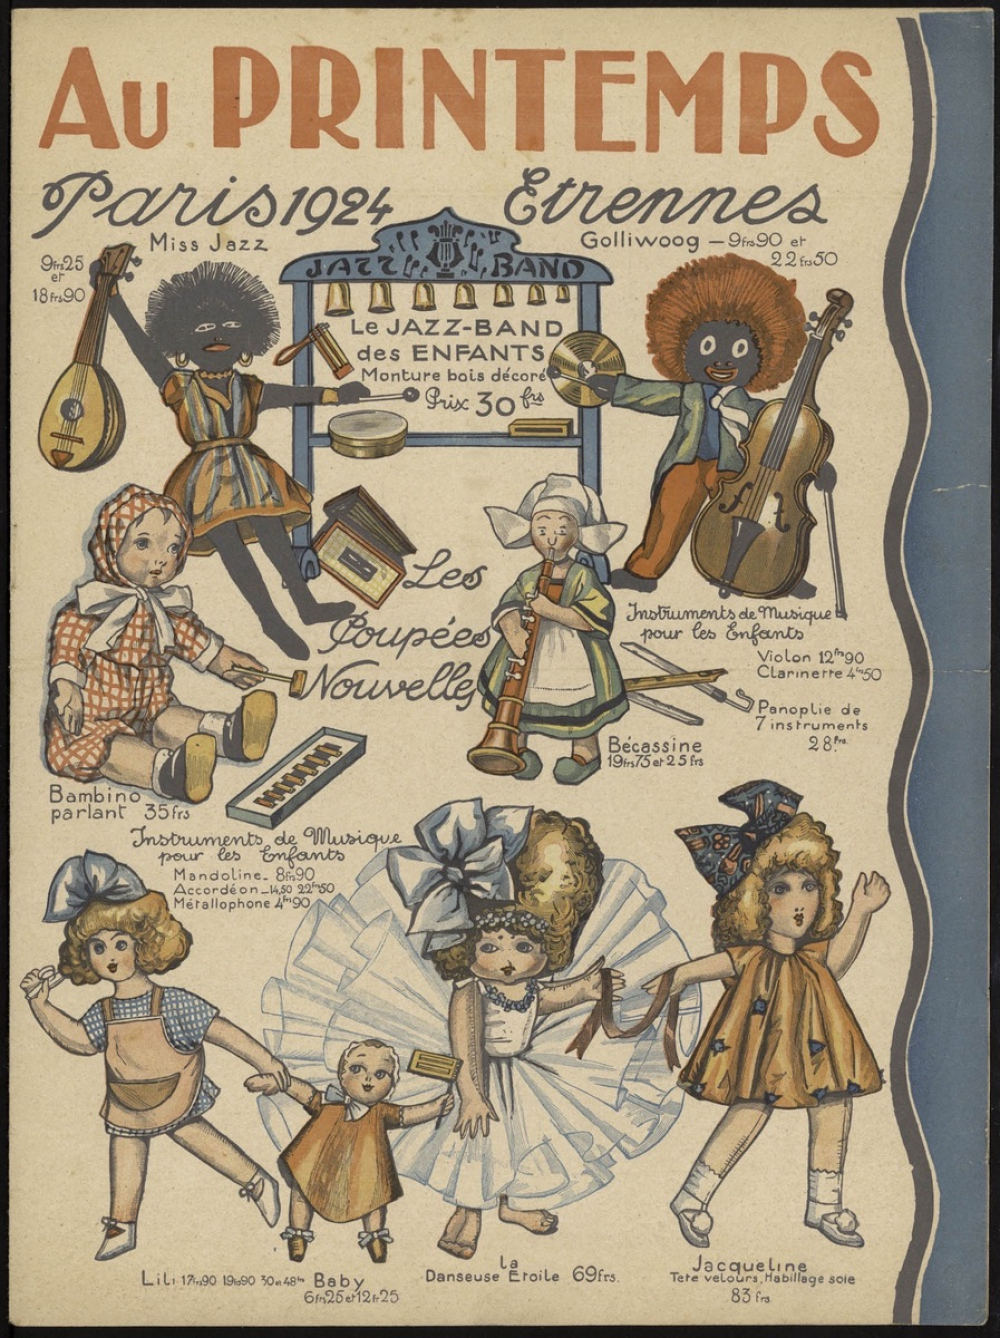 Au PRINTEMPS
Paris 1924 Etrennes
Miss Jazz
9frs25
et
18frs90
Golliwoog — 9frs90 et
22frs50
JAZZ BAND
Le JAZZ-BAND
des ENFANTS
Monture bois décoré
Prix 30 frs
Les
Poupées
Nouvelles
Instruments de Musique
pour les Enfants
Violon 12frs90
Clarinette 4frs50
Panoplie de
7 instruments
28frs
Bécassine
19frs75 et 25frs
Bambino
parlant 35frs
Instruments de Musique
pour les Enfants
Mandoline_ 8frs90
Accordéon_14,50 22frs50
Métallophone 4frs90
Lili 17frs90 19frs90 30 et 48frs
Baby
6frs25 et 12fr25
la
Danseuse Etoile 69frs.
Jacqueline
Tete velours, Habillage soie
83 frs